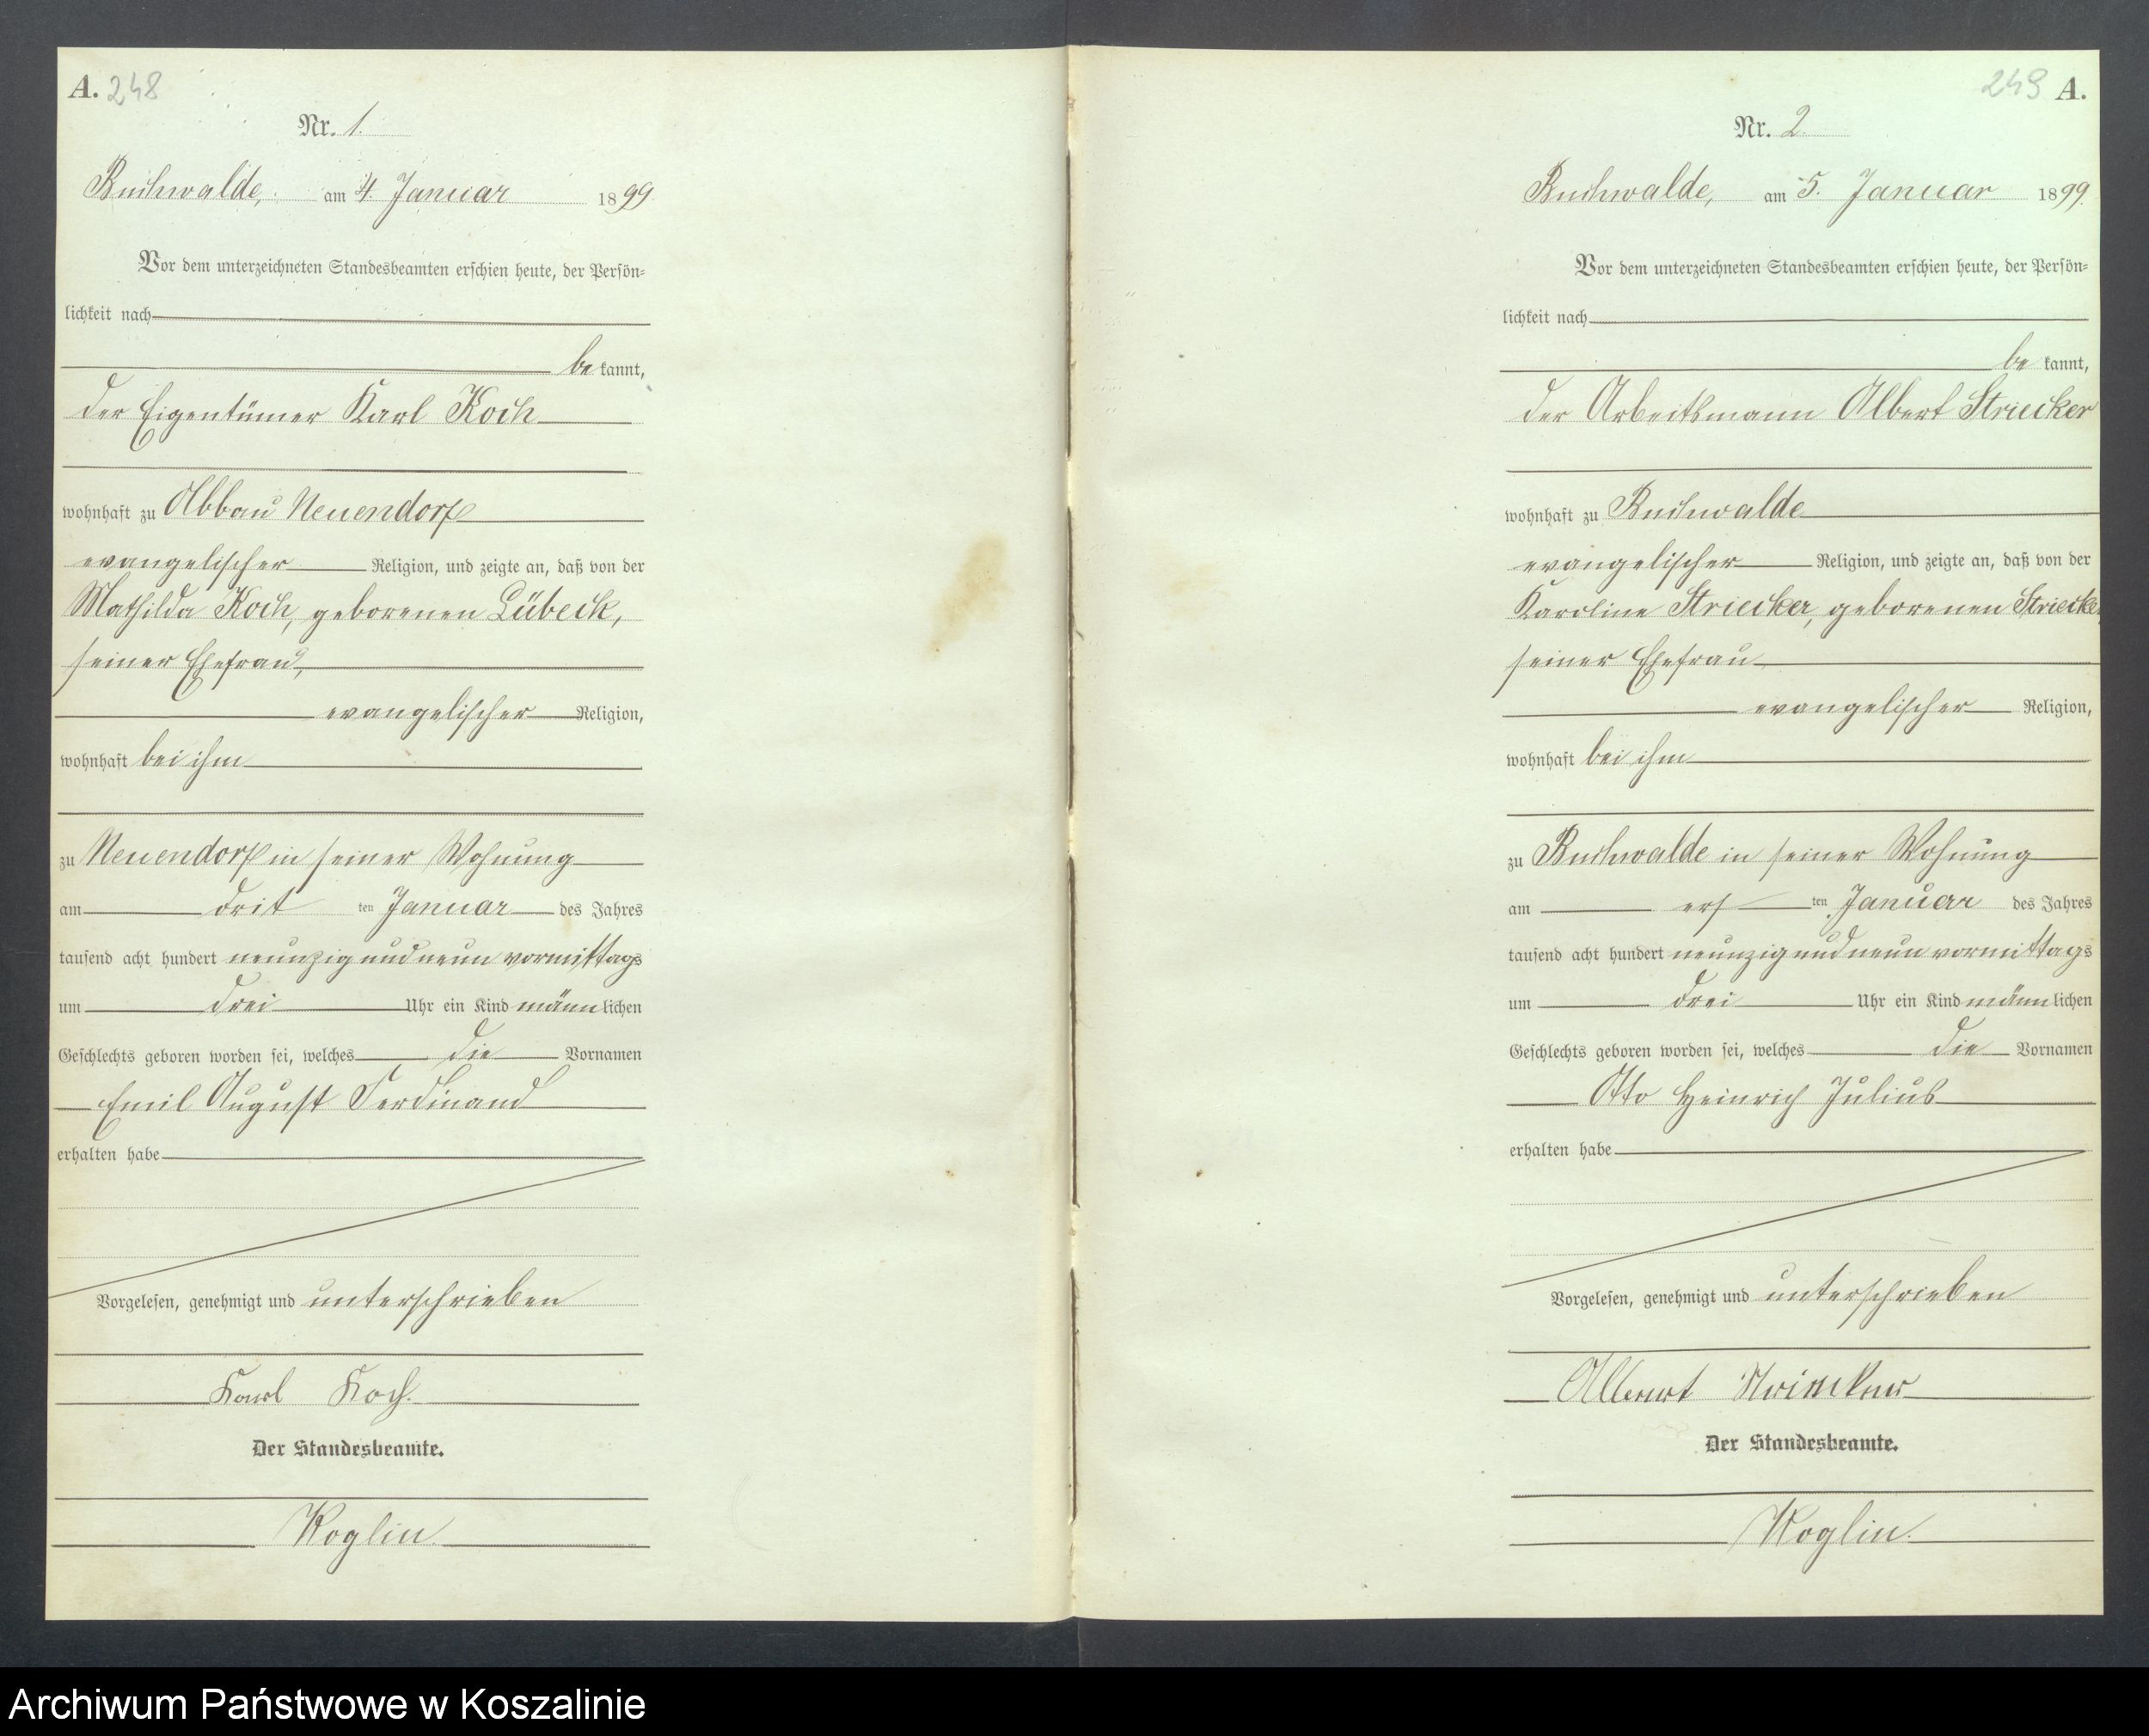 A. 248
Nr. 1.
Buchwalde, am 4. Januar 1899
Vor dem unterzeichneten Standesbeamten erschien heute, der Persön=
lichkeit nach
be kannt,
der Eigentümer Karl Koch
wohnhaft zu Abbau Neuendorf
evangelischer Religion, und zeigte an, daß von der
Mathilda Koch, geborenen Lübeck,
seiner Ehefrau,
evangelischer Religion,
wohnhaft bei ihm
zu Neuendorf in seiner Wohnung
am drit ten Januar des Jahres
tausend acht hundert neunzig und neun vormittags
um drei Uhr ein Kind männlichen
Geschlechts geboren worden sei, welches die Vornamen
Emil August Ferdinand
erhalten habe
Vorgelesen, genehmigt und unterschrieben
Karl Koch.
Der Standesbeamte.
Koglin.
249 A.
Nr. 2.
Buchwalde, am 5. Januar 1899.
Vor dem unterzeichneten Standesbeamten erschien heute, der Persön=
lichkeit nach
be kannt,
der Arbeitsmann Albert Striecker
wohnhaft zu Buchwalde
evangelischer Religion, und zeigte an, daß von der
Karoline Striecker, geborenen Striecker,
seiner Ehefrau
evangelischer Religion,
wohnhaft bei ihm
zu Buchwalde in seiner Wohnung
am ers ten Januar des Jahres
tausend acht hundert neunzig und neun vormittags
um drei Uhr ein Kind männlichen
Geschlechts geboren worden sei, welches die Vornamen
Otto Heinrich Julius
erhalten habe
Vorgelesen, genehmigt und unterschrieben
Albert Striecker
Der Standesbeamte.
Koglin.
Archiwum Państwowe w Koszalinie